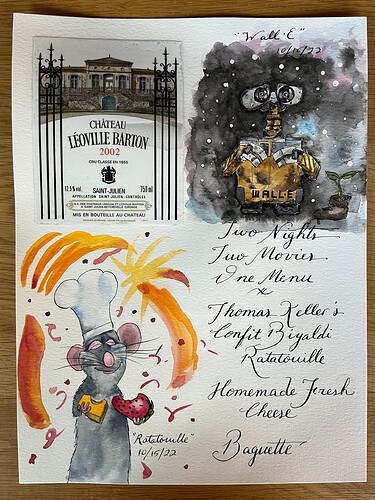 "Wall·E"
10/14/22
CHÂTEAU
LÉOVILLE BARTON
2002
CRU CLASSÉ EN 1855
12,5% vol.
SAINT-JULIEN
750 ml
APPELLATION SAINT-JULIEN CONTRÔLÉE
MIS EN BOUTEILLE AU CHATEAU
WALL·E
Two Nights
Two Movies
One Menu
Thomas Keller's
Confit Biyaldi
Ratatouille
Homemade Fresh
Cheese
Baguette
"Ratatouille"
10/15/22